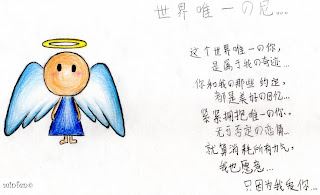 世界唯一の尼...
这个世界唯一の你,
是属于我の奇迹...
你和我の那些约定,
都是美好の回忆...
紧紧拥抱唯一の你..
无可否定の恋情...
就算消耗所有力气,
我也愿意...
只因为我爱你...